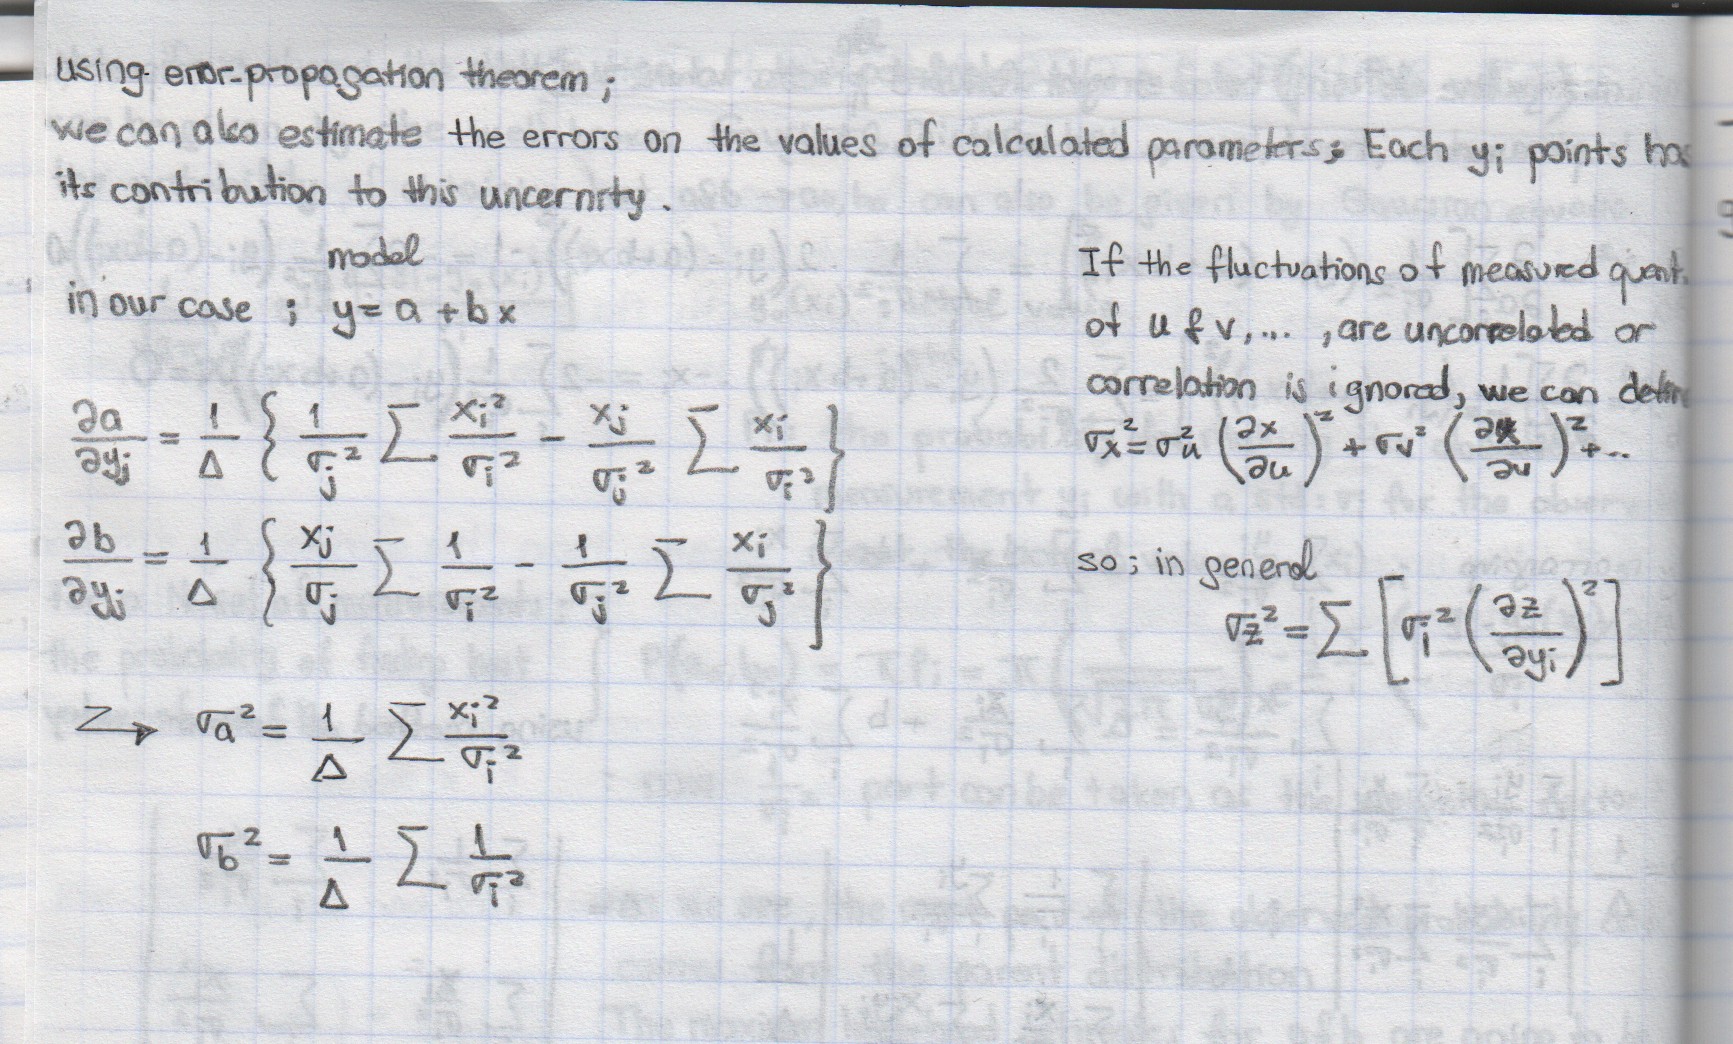 using error-propagation theorem ;
we can also estimate the errors on the values of calculated parameters; Each yᵢ points has
its contribution to this uncernity .
model
in our case ; y = a + bx
∂a/∂yⱼ = 1/Δ { 1/σⱼ² Σ xᵢ²/σᵢ² - xⱼ/σⱼ² Σ xᵢ/σᵢ² }
∂b/∂yⱼ = 1/Δ { xⱼ/σⱼ Σ 1/σᵢ² - 1/σⱼ² Σ xᵢ/σⱼ² }
Z → σa² = 1/Δ Σ xᵢ²/σᵢ²
σb² = 1/Δ Σ 1/σᵢ²
If the fluctuations of measured quant.
of u & v,... , are uncorrelated or
correlation is ignored, we can define
σx² = σu² (∂x/∂u)² + σv² (∂x/∂v)² + ...
so ; in general
σz² = Σ [ σᵢ² (∂z/∂yᵢ)² ]